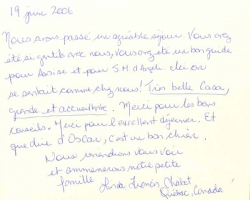 19 juin 2006
Nous avons passé un agréable séjour. Vous avez
été si gentils avec nous, vous avez été un bon guide
pour Assise et pour S.M d'Angeli. On
se sentait comme chez nous! Très belle Casa,
grande et accueillante. Merci pour les bons
conseils. Merci pour l'excellent déjeuner. Et
que dire d'Oscar, c'est un bon chien.
Nous reviendrons vous voir
et amènerons notre petite
famille.
Chabot
Québec, Canada